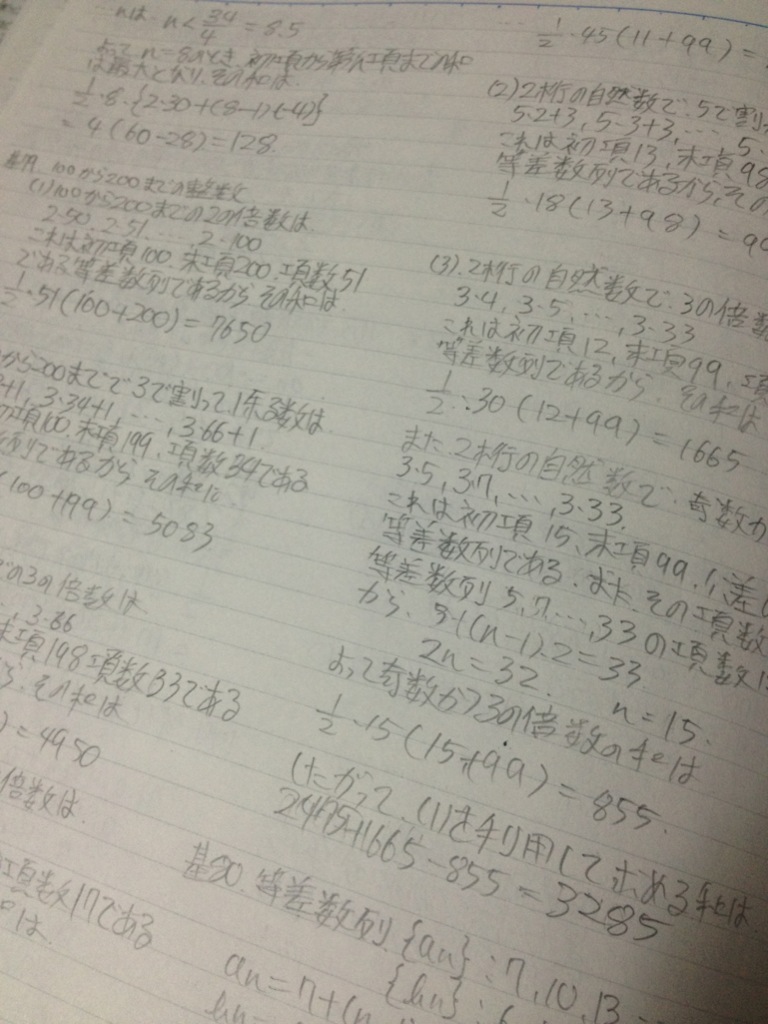 nは n<34/4=8.5
よって n=8のとき、初項から第n項までの和
は最大となり、その和は
1/2・8・{2・30+(8-1)(-4)}
=4(60-28)=128
100から200までの整数
(1)100から200までの2の倍数は
2・50, 2・51, …, 2・100
これは初項100, 末項200, 項数51
である等差数列であるから その和は
1/2・51(100+200)=7650
から200までで3で割って1余る数は
+1, 3・34+1, …, 3・66+1
項100 末項199, 項数34である
列であるから その和は
(100+199)=5083
の3の倍数は
3・66
末項198項数33である
その和は
)=4950
倍数は
項数17である
は
1/2・45(11+99)=
(2)2桁の自然数で、5で割っ
5・2+3, 5・3+3, …, 5・
これは初項13, 末項98
等差数列であるから、その
1/2・18(13+98)=99
(3). 2桁の自然数で、3の倍数
3・4, 3・5, …, 3・33
これは初項12, 末項99, 項
等差数列であるから、その和は
1/2・30(12+99)=1665
また、2桁の自然数で、奇数か
3・5, 3・7, …, 3・33.
これは初項15, 末項99. 公差
等差数列である. また、その項数
等差数列 5, 7, …, 33の項数
から、5+(n-1)・2=33
2n=32. n=15.
よって奇数かつ3の倍数の和は
1/2・15(15+99)=855.
したがって、(1)を利用して求める和は
2475+1665-855=3285
基80. 等差数列{an}:7, 10, 13
{bn}:
an=7+(n
bn=